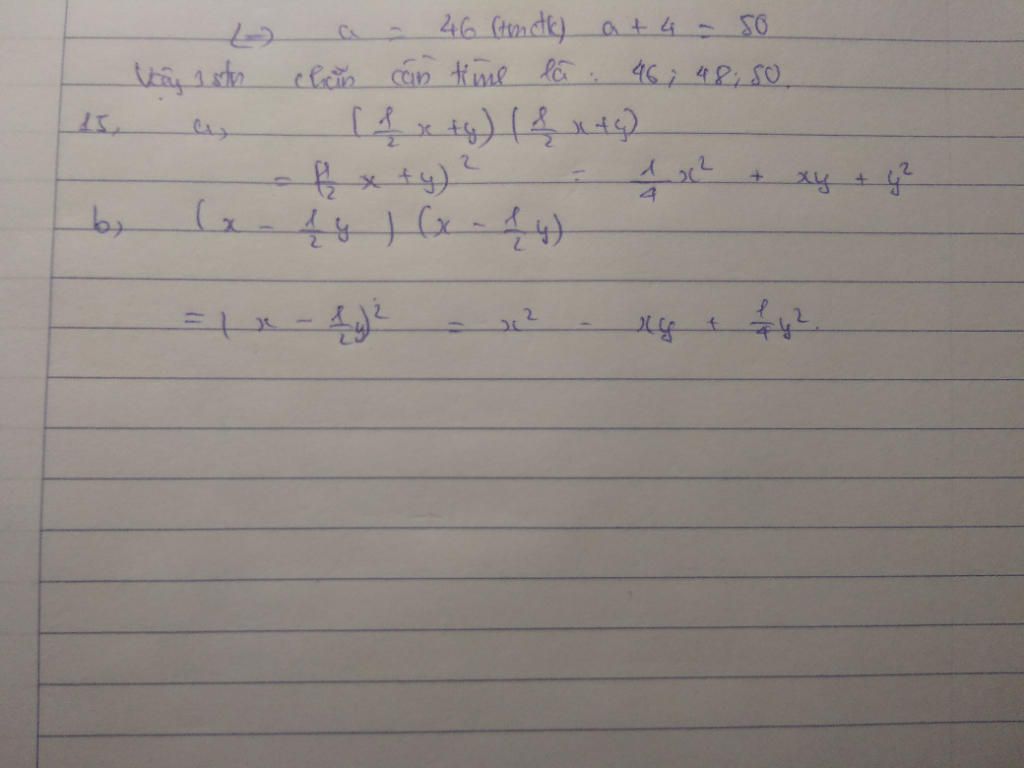 <=> a = 46 (tmđk) a + 4 = 50
Vậy 3 stn chẵn cần tìm là : 46 ; 48 ; 50.
15, a, (1/2 x + y) (1/2 x + y)
= (1/2 x + y)² = 1/4 x² + xy + y²
b, (x - 1/2 y) (x - 1/2 y)
= (x - 1/2 y)² = x² - xy + 1/4 y².